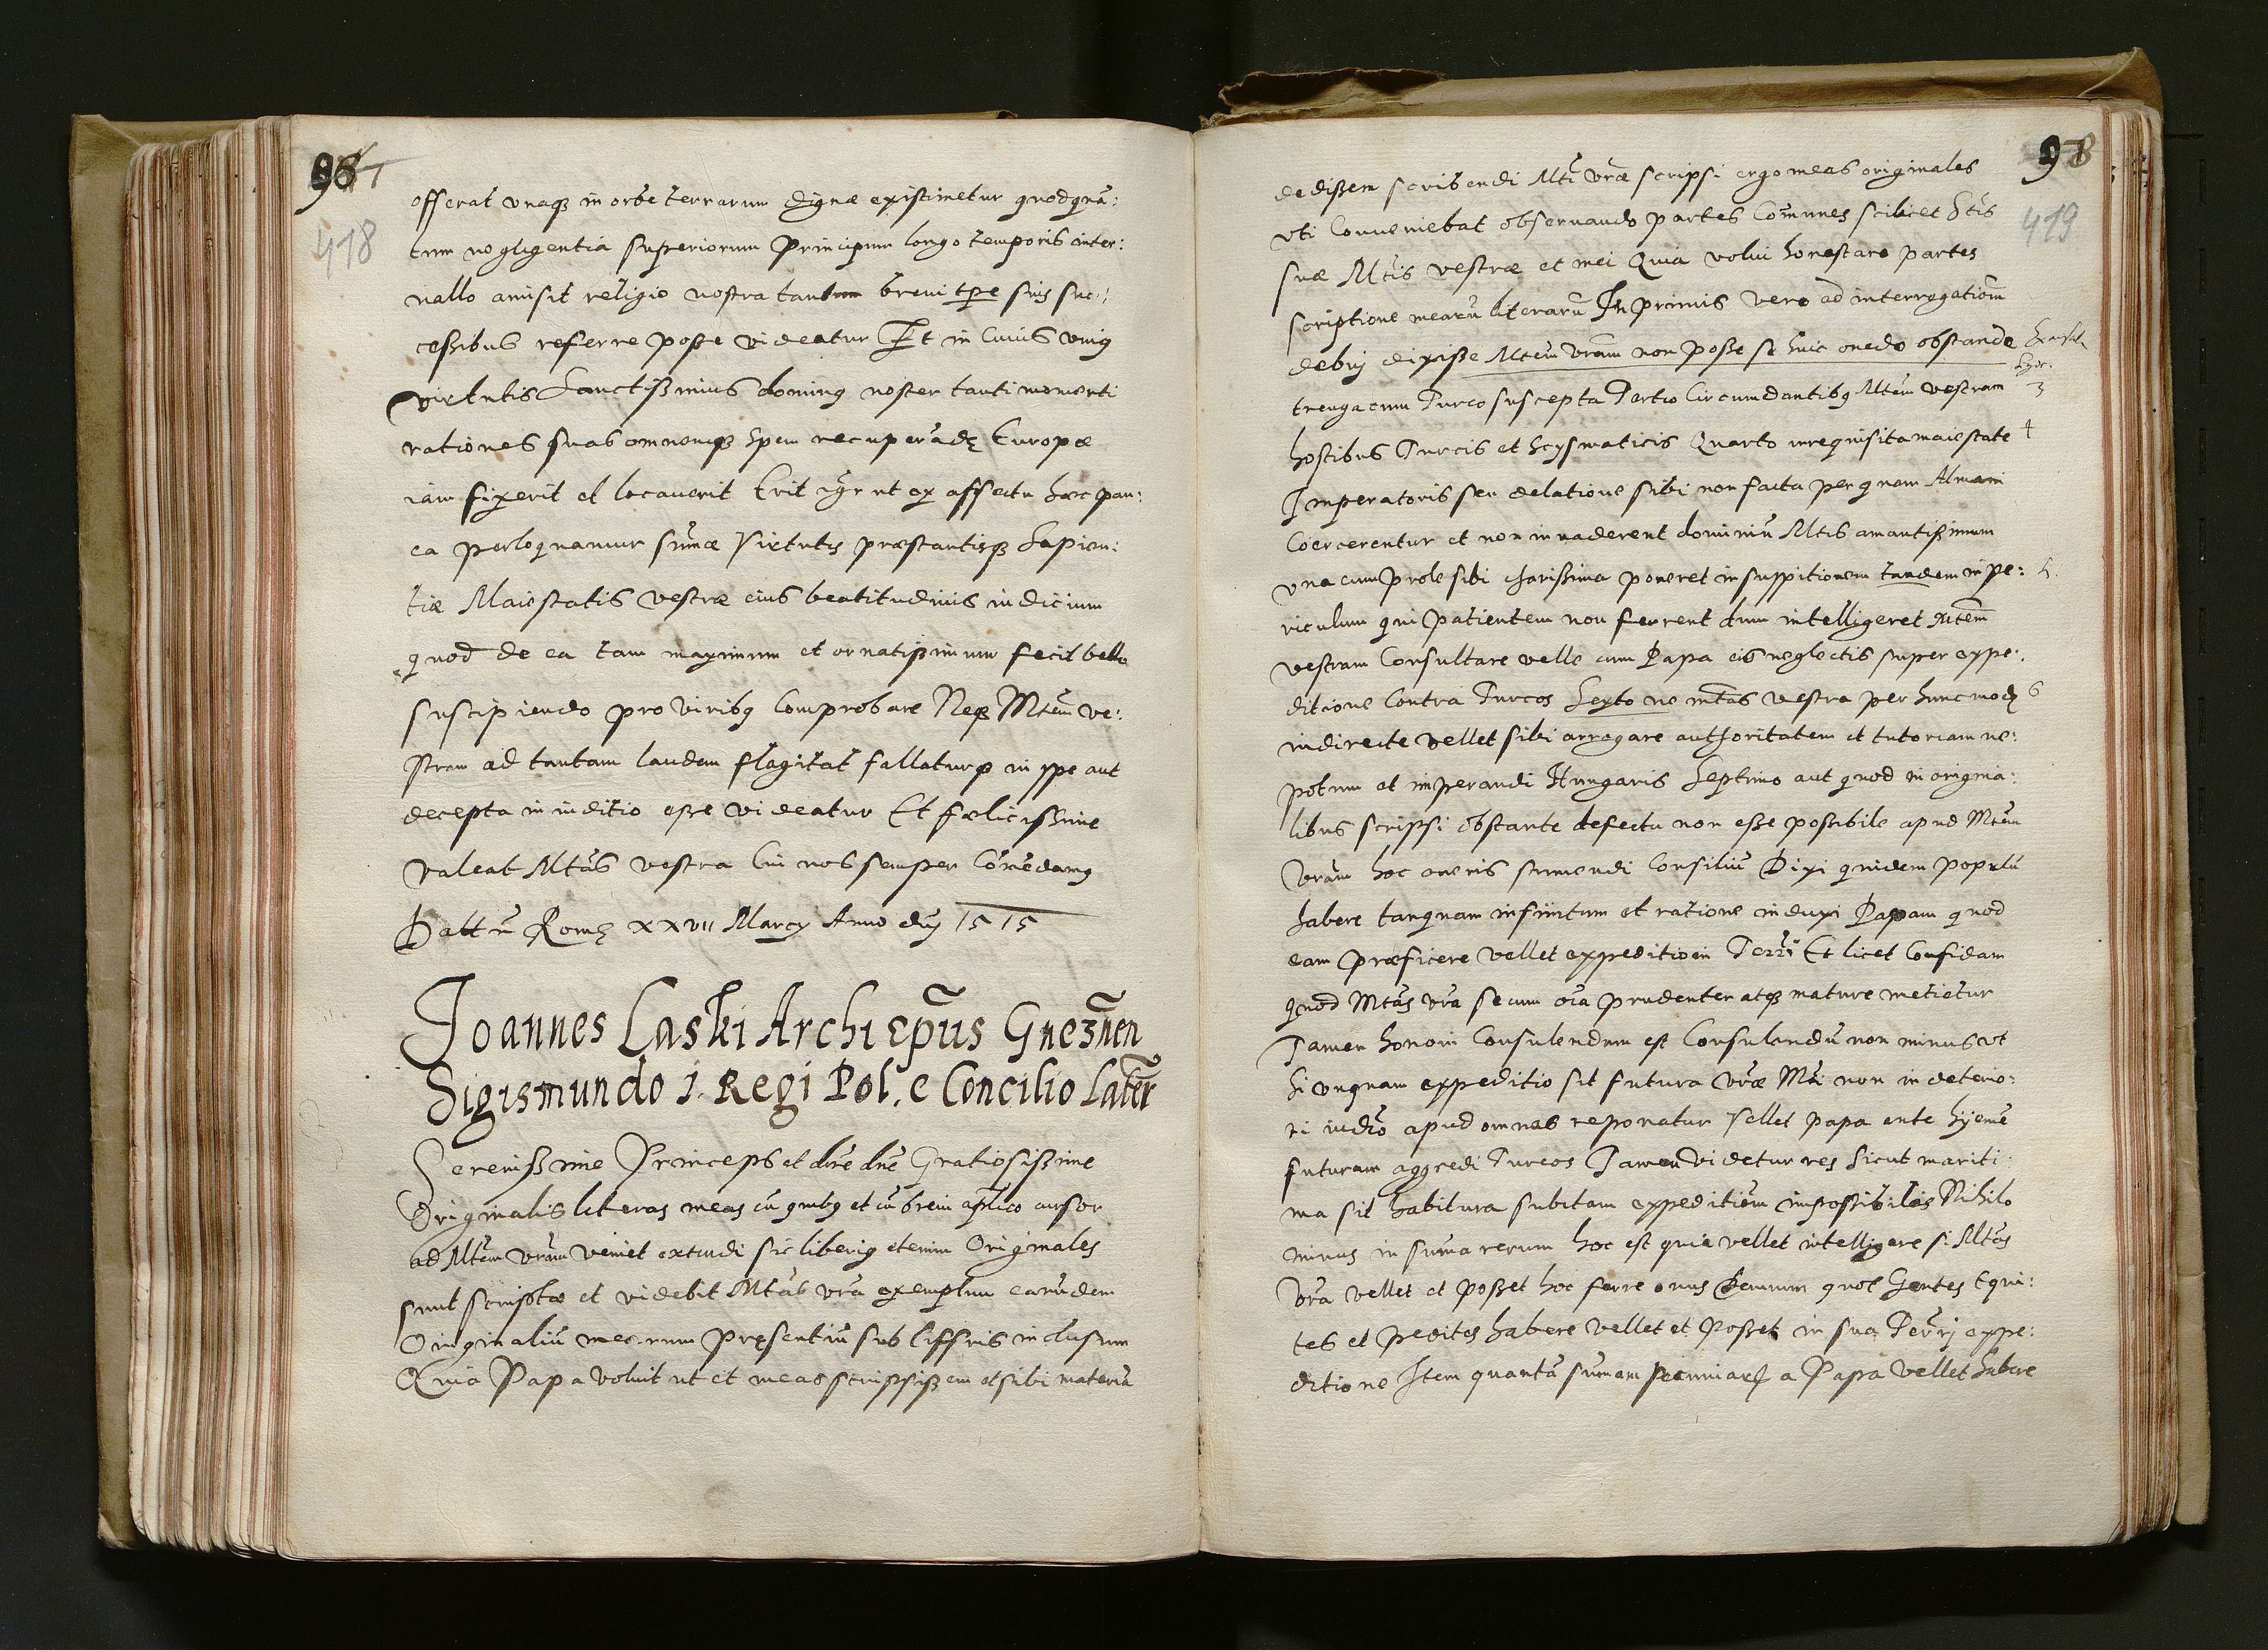 96
418
offerat vnaq3 in orbe terrarum digna existimetur quodquã:
tum negligentia superiorum Principum longo temporis inter:
uallo amisit religio nostra tantum breui tp̃e suis suc:
cessibus referre posse videatur Et in cuius vnig
virtutis Sanctissimus dominus noster tanti momenti
rationes suas omnemq3 spem recuperãdę Europæ
iam fixerit et locauerit Erit igr̃ ut ex affectu hæc pau:
ca perloquamur sum̃æ Virtutis præstantisq3 Sapien:
tiæ Maiestatis vestræ eius beatitudinis iudicium
quod de ea tam maximum et ornatissimum fecit bello
suscipiendo pro viribus comprobare Neq3 Mtẽm ve:
stram ad tantam laudem flagitat fallaturq3 in spe aut
decepta in iuditio esse videatur Et fælicissime
valeat Mtãs vestra cui nos semper Com̃edamus
Dattũ Romę XXVII Marcy Anno dnj 1515
Joannes Laski Archiep̃us Gnesnẽn
Sigismundo 1. Regi Pol. e Concilio Latẽr
Serenissime Princeps et dñe dñe Gratiosissime
Originalis literas meas cũ quibus et cũ breui ap̃lico cursor
ad Mtẽm vr̃am veniet extrudi sic liberius etenim Originales
sunt scriptæ et videbit Mtãs vr̃a exemplum earũdem
Originaliũ mearum Pręsentiũ sub Ciffris inclusum
Quia Papa voluit ut et meas scripsissem et sibi materiã
97
419
dedissem scribendi Mtĩ vr̃æ scripsi ergo meas originales
vti Conueniebat obseruando partes Com̃unes scilicet Stĩs
suæ Mtĩs vestræ et mei Quia volui honestare partes
scriptione mearũ literarũ In primis vero ad interrogatiom̃
debuj dixisse Mtẽm vr̃am non posse se huic onedo obstande
treuga cum Turco suscepta Tertio Circumdantibus Mtẽm vestram 3
hostibus Turcis et Scysmaticis Quarto irrequisita maiestate 4
Imperatoris seu delatione sibi non facta per quam Almani
Coërcerentur et non inuaderent dominiũ Mtis amantissimum
vna cum prole sibi charissima poneret in suspitionem tandem in pe: 5.
riculum qui patientem non ferrent dum intelligeret Mtẽm
vestram Consultare velle cum Papa eis neglectis super expe:
ditione Contra Turcos Sexto ne mtãs vestra per hunc modũ 6
indirecte vellet sibi arrogare authoritatem et tutoriam ne:
potum et imperandi Hungaris Septimo aut quod in origina:
libus scripsi obstante defectu non esse possibile apud Mtẽm
vr̃am hoc oneris sumendi Consiliũ Dixi quidem populũ
habere tanquam infinitum et ratione induxi Papam quod
eam præficere vellet expeditioni Terrĩ Et licet Confidam
quod Mtãs vr̃a secum oĩa prudenter atq3 mature metietur
Tamen honori Consulendum est Consulendũ non minus vt
si vnquam expeditio sit futura vr̃æ Mtĩ non in deterio:
ri iudĩo apud omnes reponatur Vellet papa ante hyeme
futuram aggredi Turcos Tamen videtur res sicut mariti
ma sit habitura subitam expeditiõm impossibiles Nihilo
minus in sum̃a rerum hoc est quia vellet intelligere si Mtãs
vr̃a vellet et posset hoc ferre onus demum quot Gentes Equi:
tes et pedites habere vellet et Posset in sua Terrj expe:
ditione Item quantã sum̃am pecuniarũ a Papa vellet habere